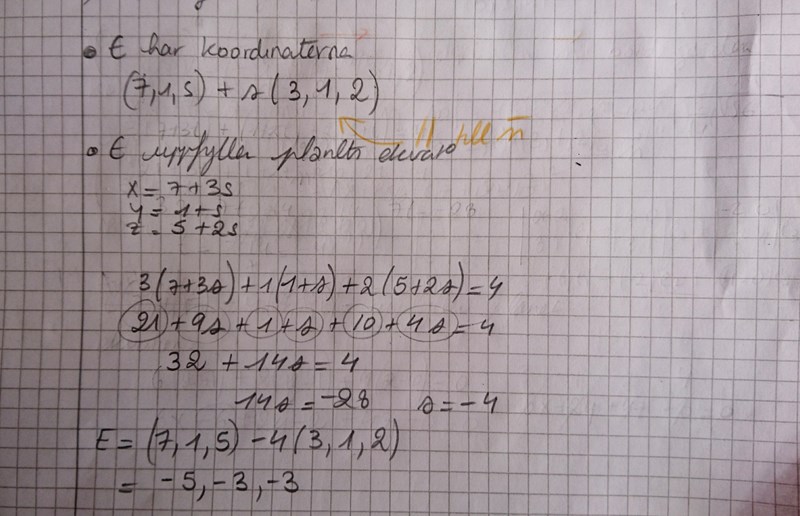 • E har koordinaterna
(7,1,5) + s(3,1,2)
// till n̄
• E uppfyller planets ekvation
x = 7+3s
y = 1+s
z = 5+2s
3(7+3s)+1(1+s)+2(5+2s)=4
21+9s+1+s+10+4s=4
32 + 14s = 4
14s = -28 s = -4
E = (7,1,5) -4(3,1,2)
= -5,-3,-3